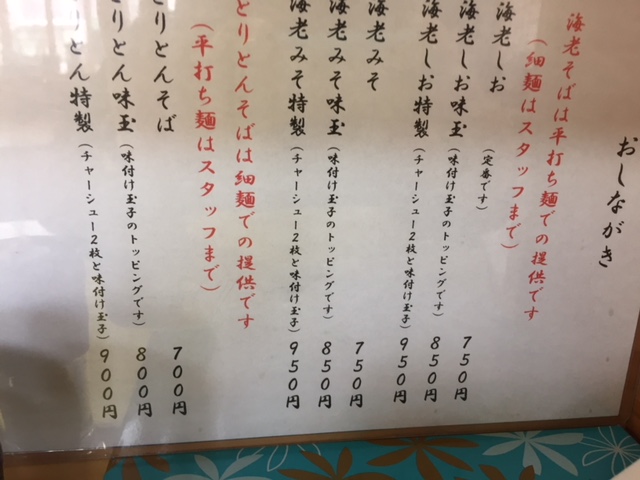 おしながき
海老そばは平打ち麺での提供です
(細麺はスタッフまで)
海老しお (定番です) 750円
海老しお味玉 (味付け玉子のトッピングです) 850円
海老しお特製 (チャーシュー2枚と味付け玉子) 950円
海老みそ 750円
海老みそ味玉 (味付け玉子のトッピングです) 850円
海老みそ特製 (チャーシュー2枚と味付け玉子) 950円
とりとんそばは細麺での提供です
(平打ち麺はスタッフまで)
とりとんそば 700円
とりとん味玉 (味付け玉子のトッピングです) 800円
とりとん特製 (チャーシュー2枚と味付け玉子) 900円